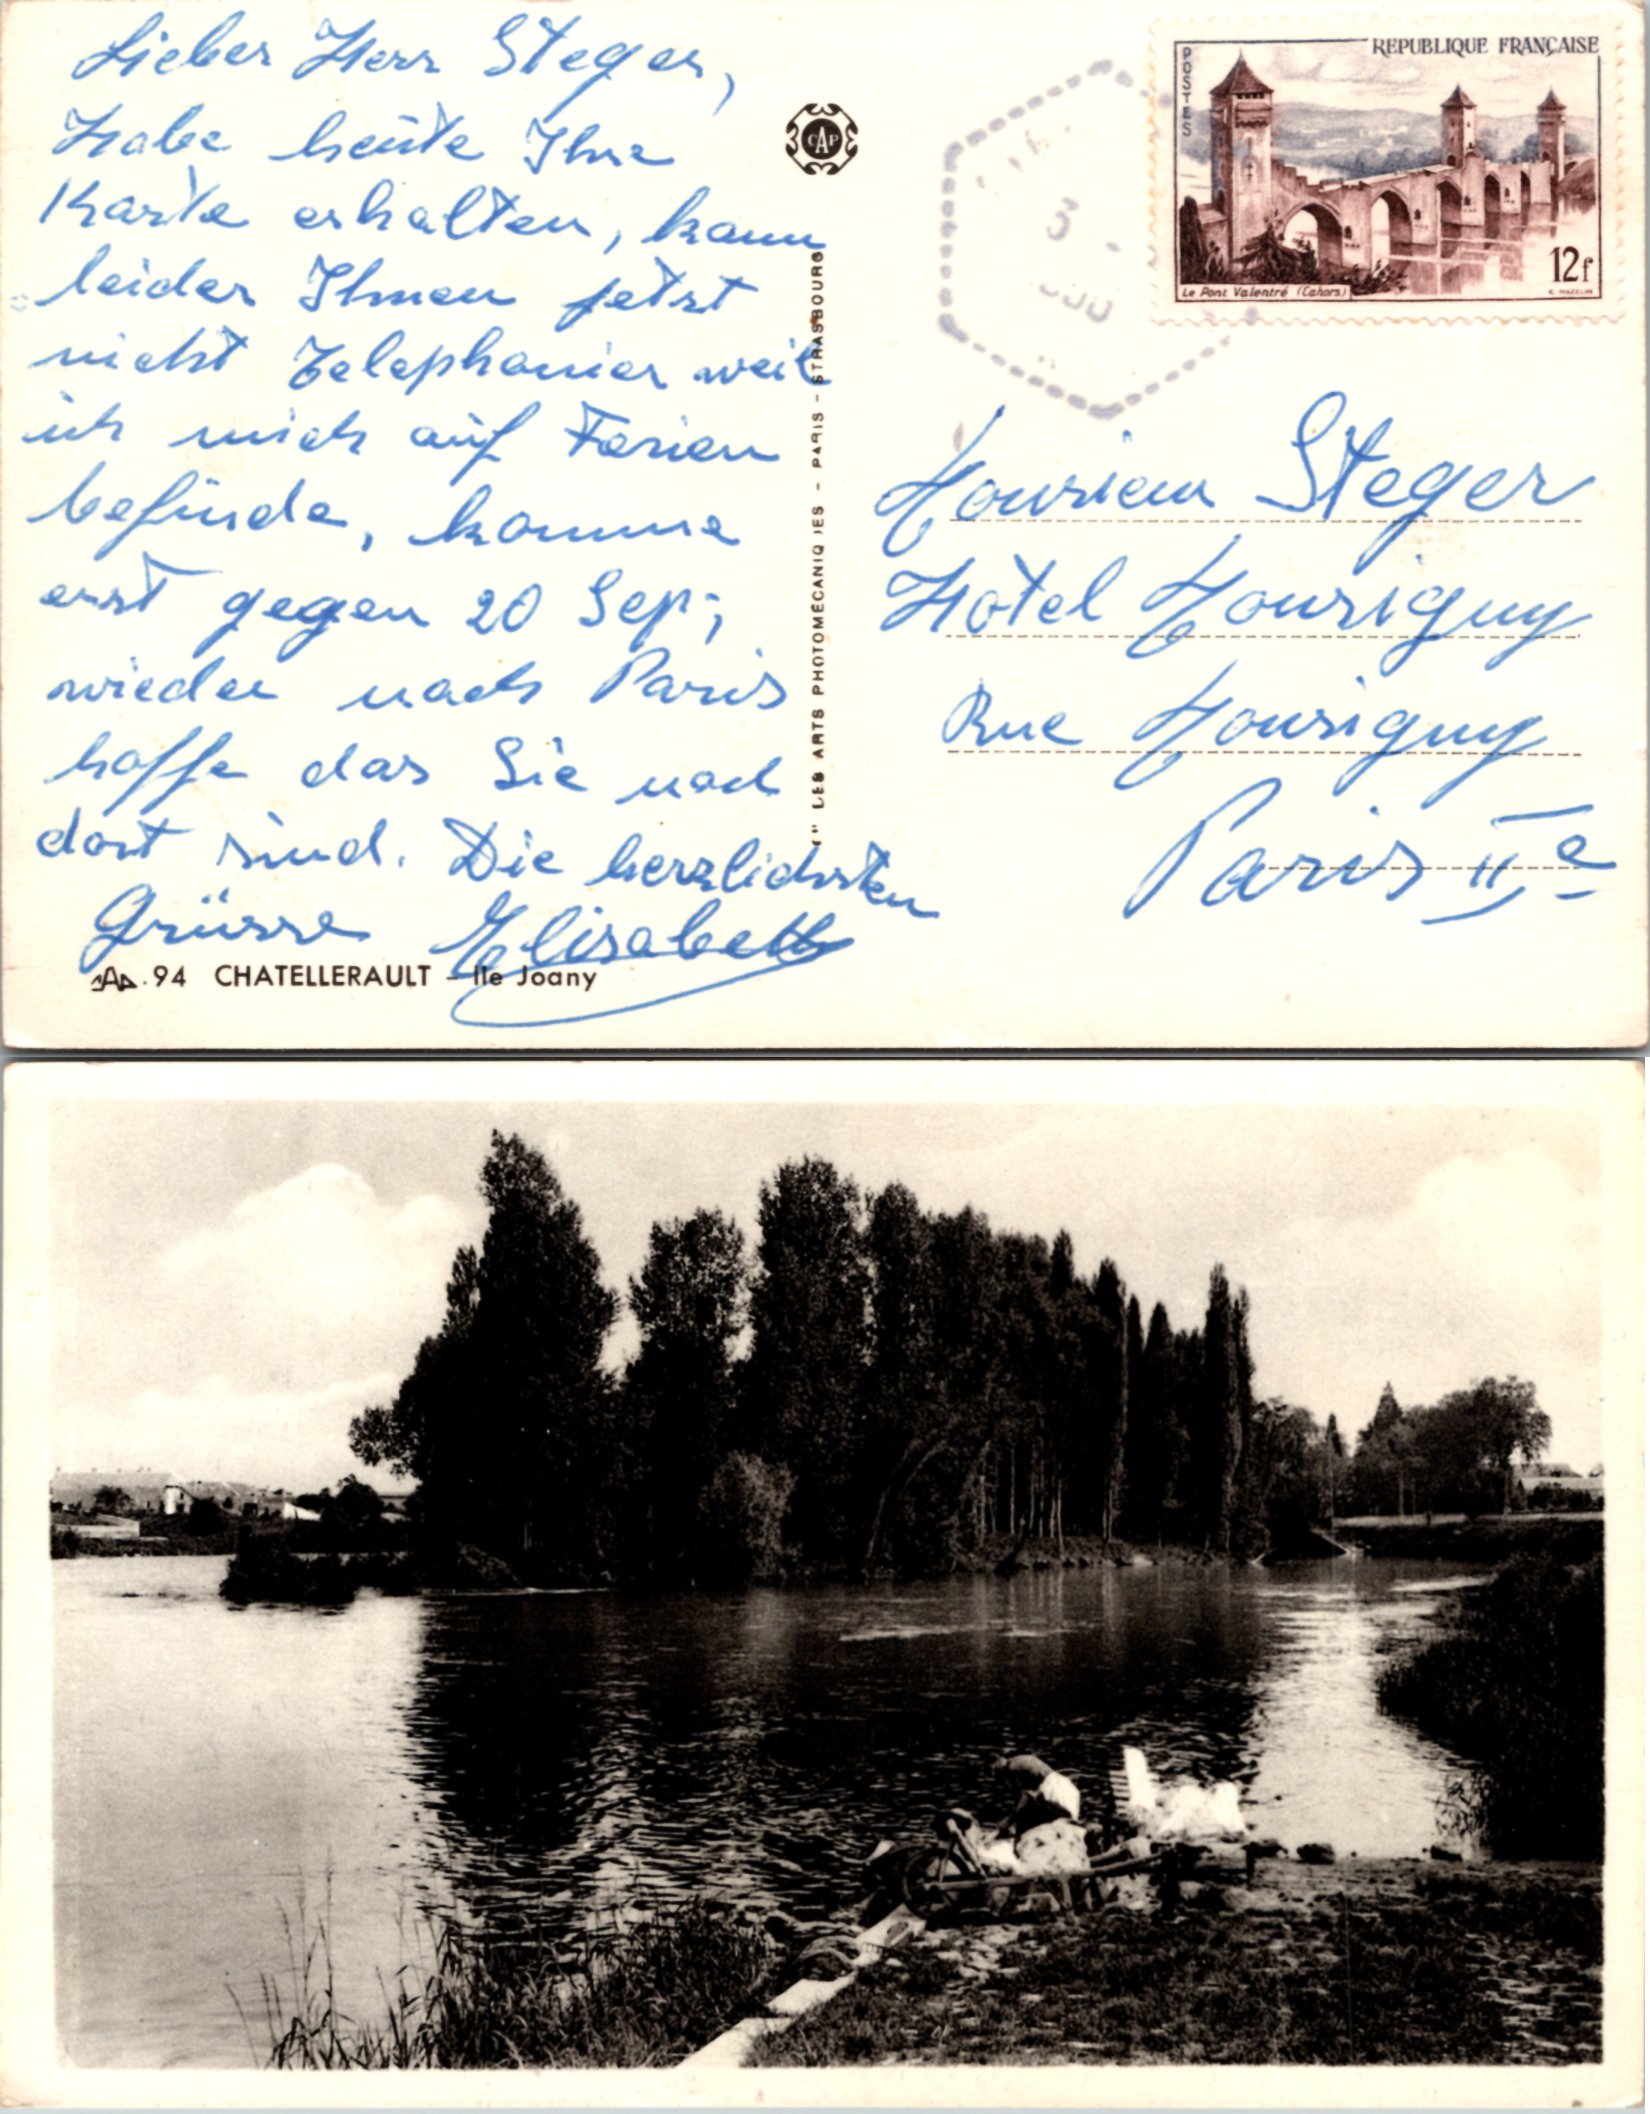 Lieber Herr Steger,
Habe heute Ihre
Karte erhalten, kann
leider Ihnen jetzt
nicht Telephonier weil
ich mich auf Ferien
befinde, komme
erst gegen 20 Sep;
wieder nach Paris
hoffe das Sie noch
dort sind. Die herzlichsten
Grüsse Elisabeth
94 CHATELLERAULT - Ile Joany
CAP
"LES ARTS PHOTOMÉCANIQUES" - PARIS - STRASBOURG
3 -
POSTES
REPUBLIQUE FRANÇAISE
12f
Le Pont Valentré (Cahors)
C. MAZELIN
Monsieur Steger
Hôtel Monsigny
Rue Monsigny
Paris IIe